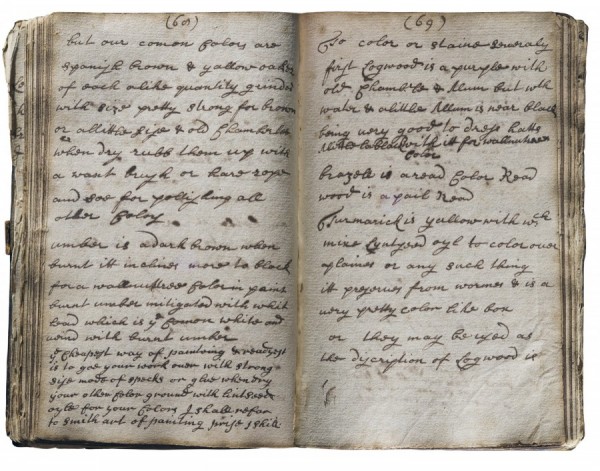 (68)
but our comon Colors are
spanish brown & yallow oaker
of each alike quantity grinded
with size pretty strong for brown
or a little size & old Chamberlye
when dry rubb them up with
a want brush or hare rope
and soe for polishing all
other Colors
umber is a dark brown when
burnt itt inclines more to black
for a wallnuttree Color in paint
burnt umber mitigated with whit
lead which is ye Comon white and
vained with burnt umber
ye Cheapest way of painting & readyest
is to goe your work over with strong
size made of specks or glue when dry
your other Color ground with lintseed
oyle for your Colors I shall refar
to smith art of painting prise 1 shill
(69)
To color or staine severaly
first Logwood is a purple with
old Chamblie & Allum but with
water & a little Allum is near black
being very good to dress hatts
with itt for wallnuttree
Color
brazele is a read Color Read
wood is a pail Read
Turmarick is yallow with wch
mixe Lyntseed oyl to color over
plaines or any such thing
it preserves from wormes & is a
very pretty color like box
or they may be used as
the discription of Logwood is